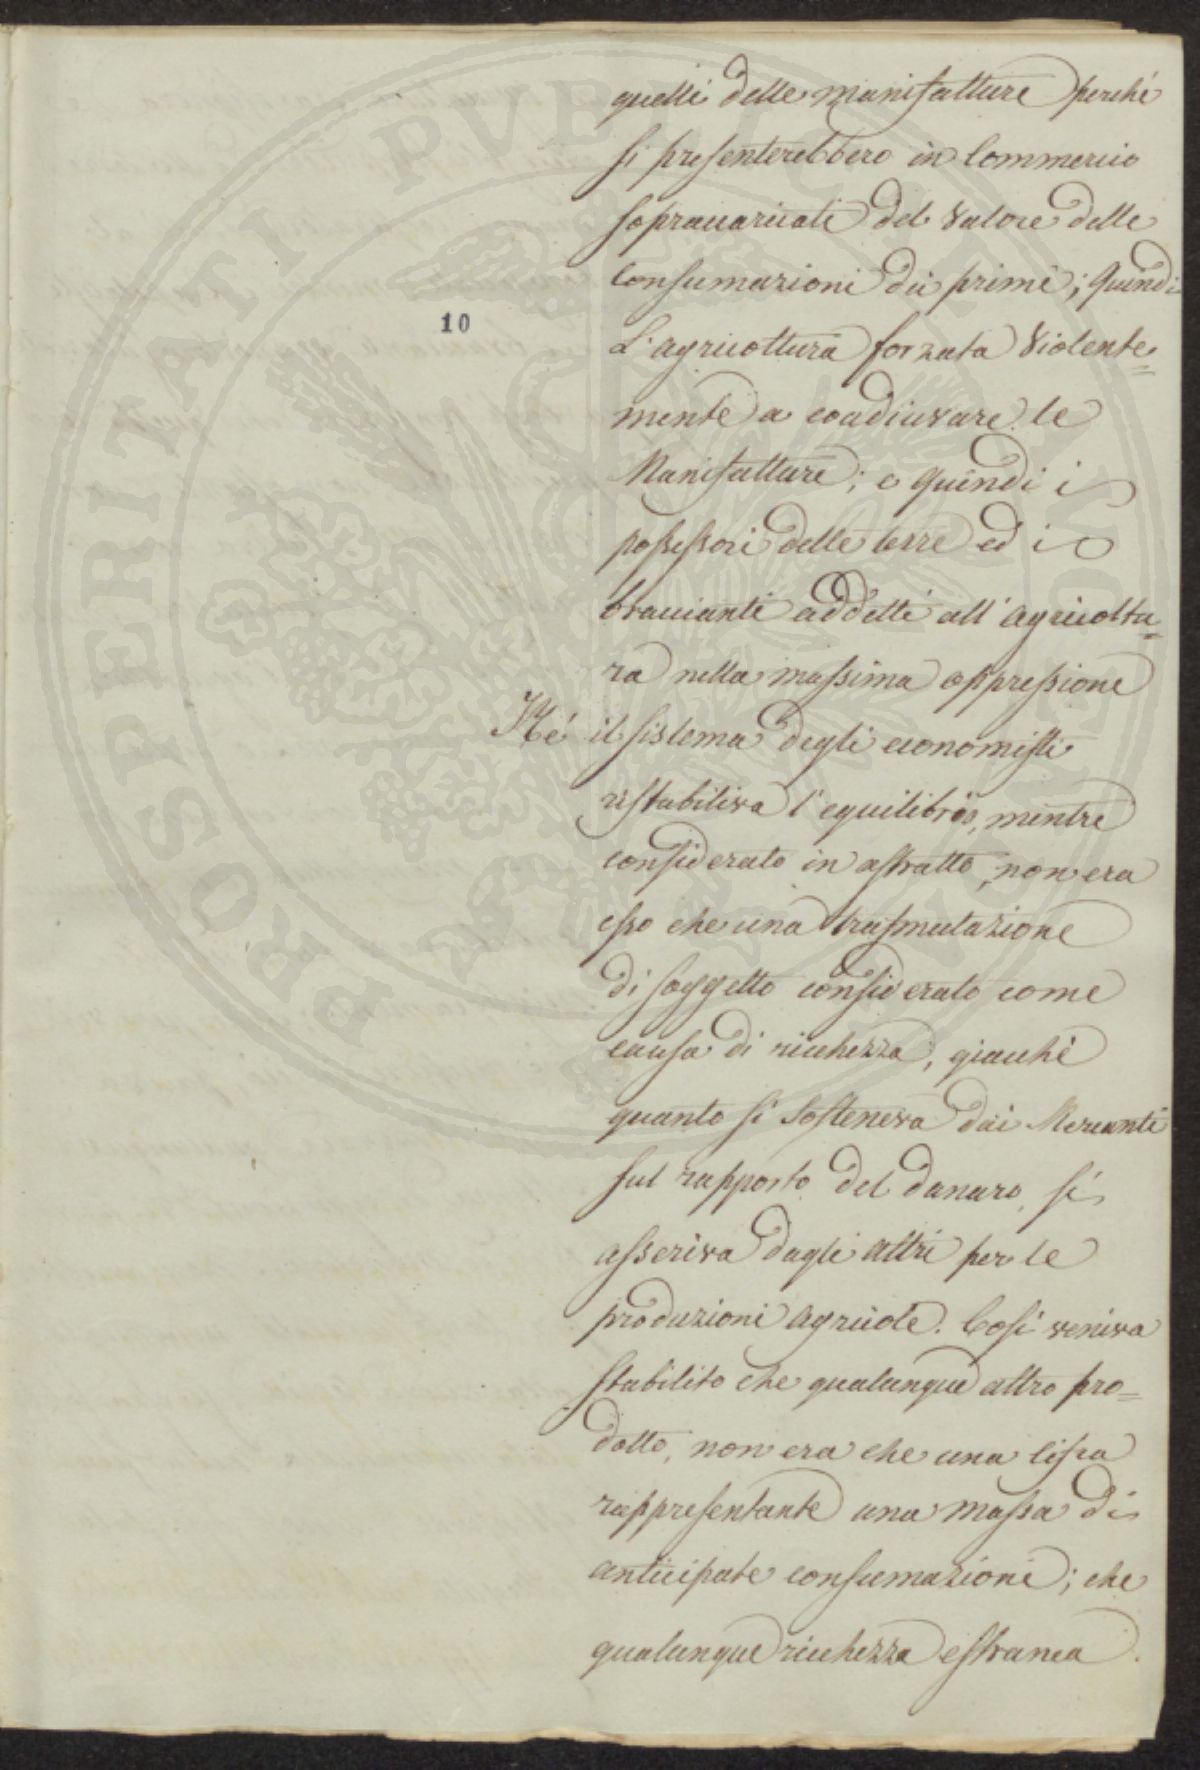 PROSPERITATI PUBLICAE AUGENDAE
10
quelli delle manifatture perchè
si presenterebbero in Commercio
sopraccaricati del valore delle
consumazioni dei primi; quindi
L'agricoltura forzata violente=
mente a coadiuvare le
Manifatture; e quindi i
possessori delle terre ed i
braccianti addetti all'agricoltu=
ra nella massima oppressione
Né il sistema degli economisti
ristabiliva l'equilibrio, mentre
considerato in astratto, non era
esso che una trasmutazione
di soggetto considerato come
causa di ricchezza, giacchè
quanto si sosteneva dai Mercanti
sul rapporto del danaro, si
asseriva dagli altri per le
produzioni agricole. Così veniva
stabilito che qualunque altro pro=
dotto, non era che una cifra
rappresentante una massa di
anticipate consumazioni; che
qualunque ricchezza estranea